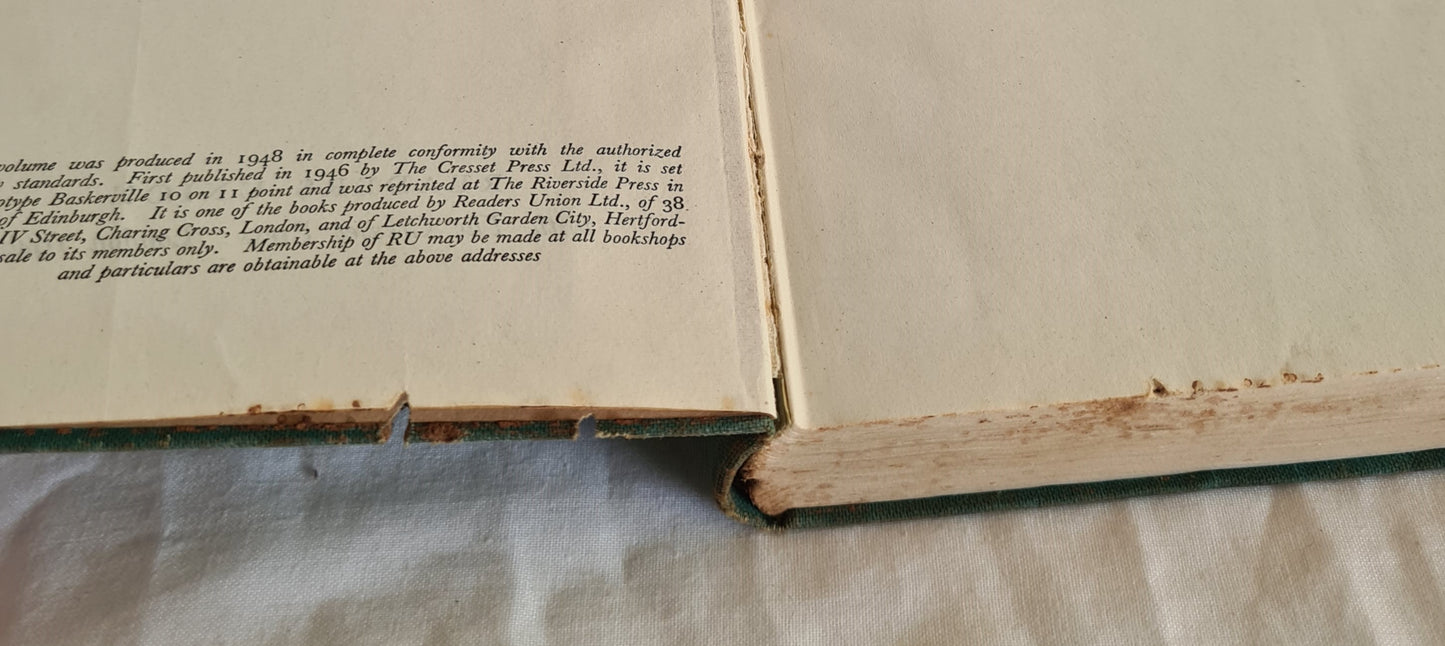 volume was produced in 1948 in complete conformity with the authorized
standards. First published in 1946 by The Cresset Press Ltd., it is set
Baskerville 10 on 11 point and was reprinted at The Riverside Press in
of Edinburgh. It is one of the books produced by Readers Union Ltd., of 38
IV Street, Charing Cross, London, and of Letchworth Garden City, Hertford-
sale to its members only. Membership of RU may be made at all bookshops
and particulars are obtainable at the above addresses